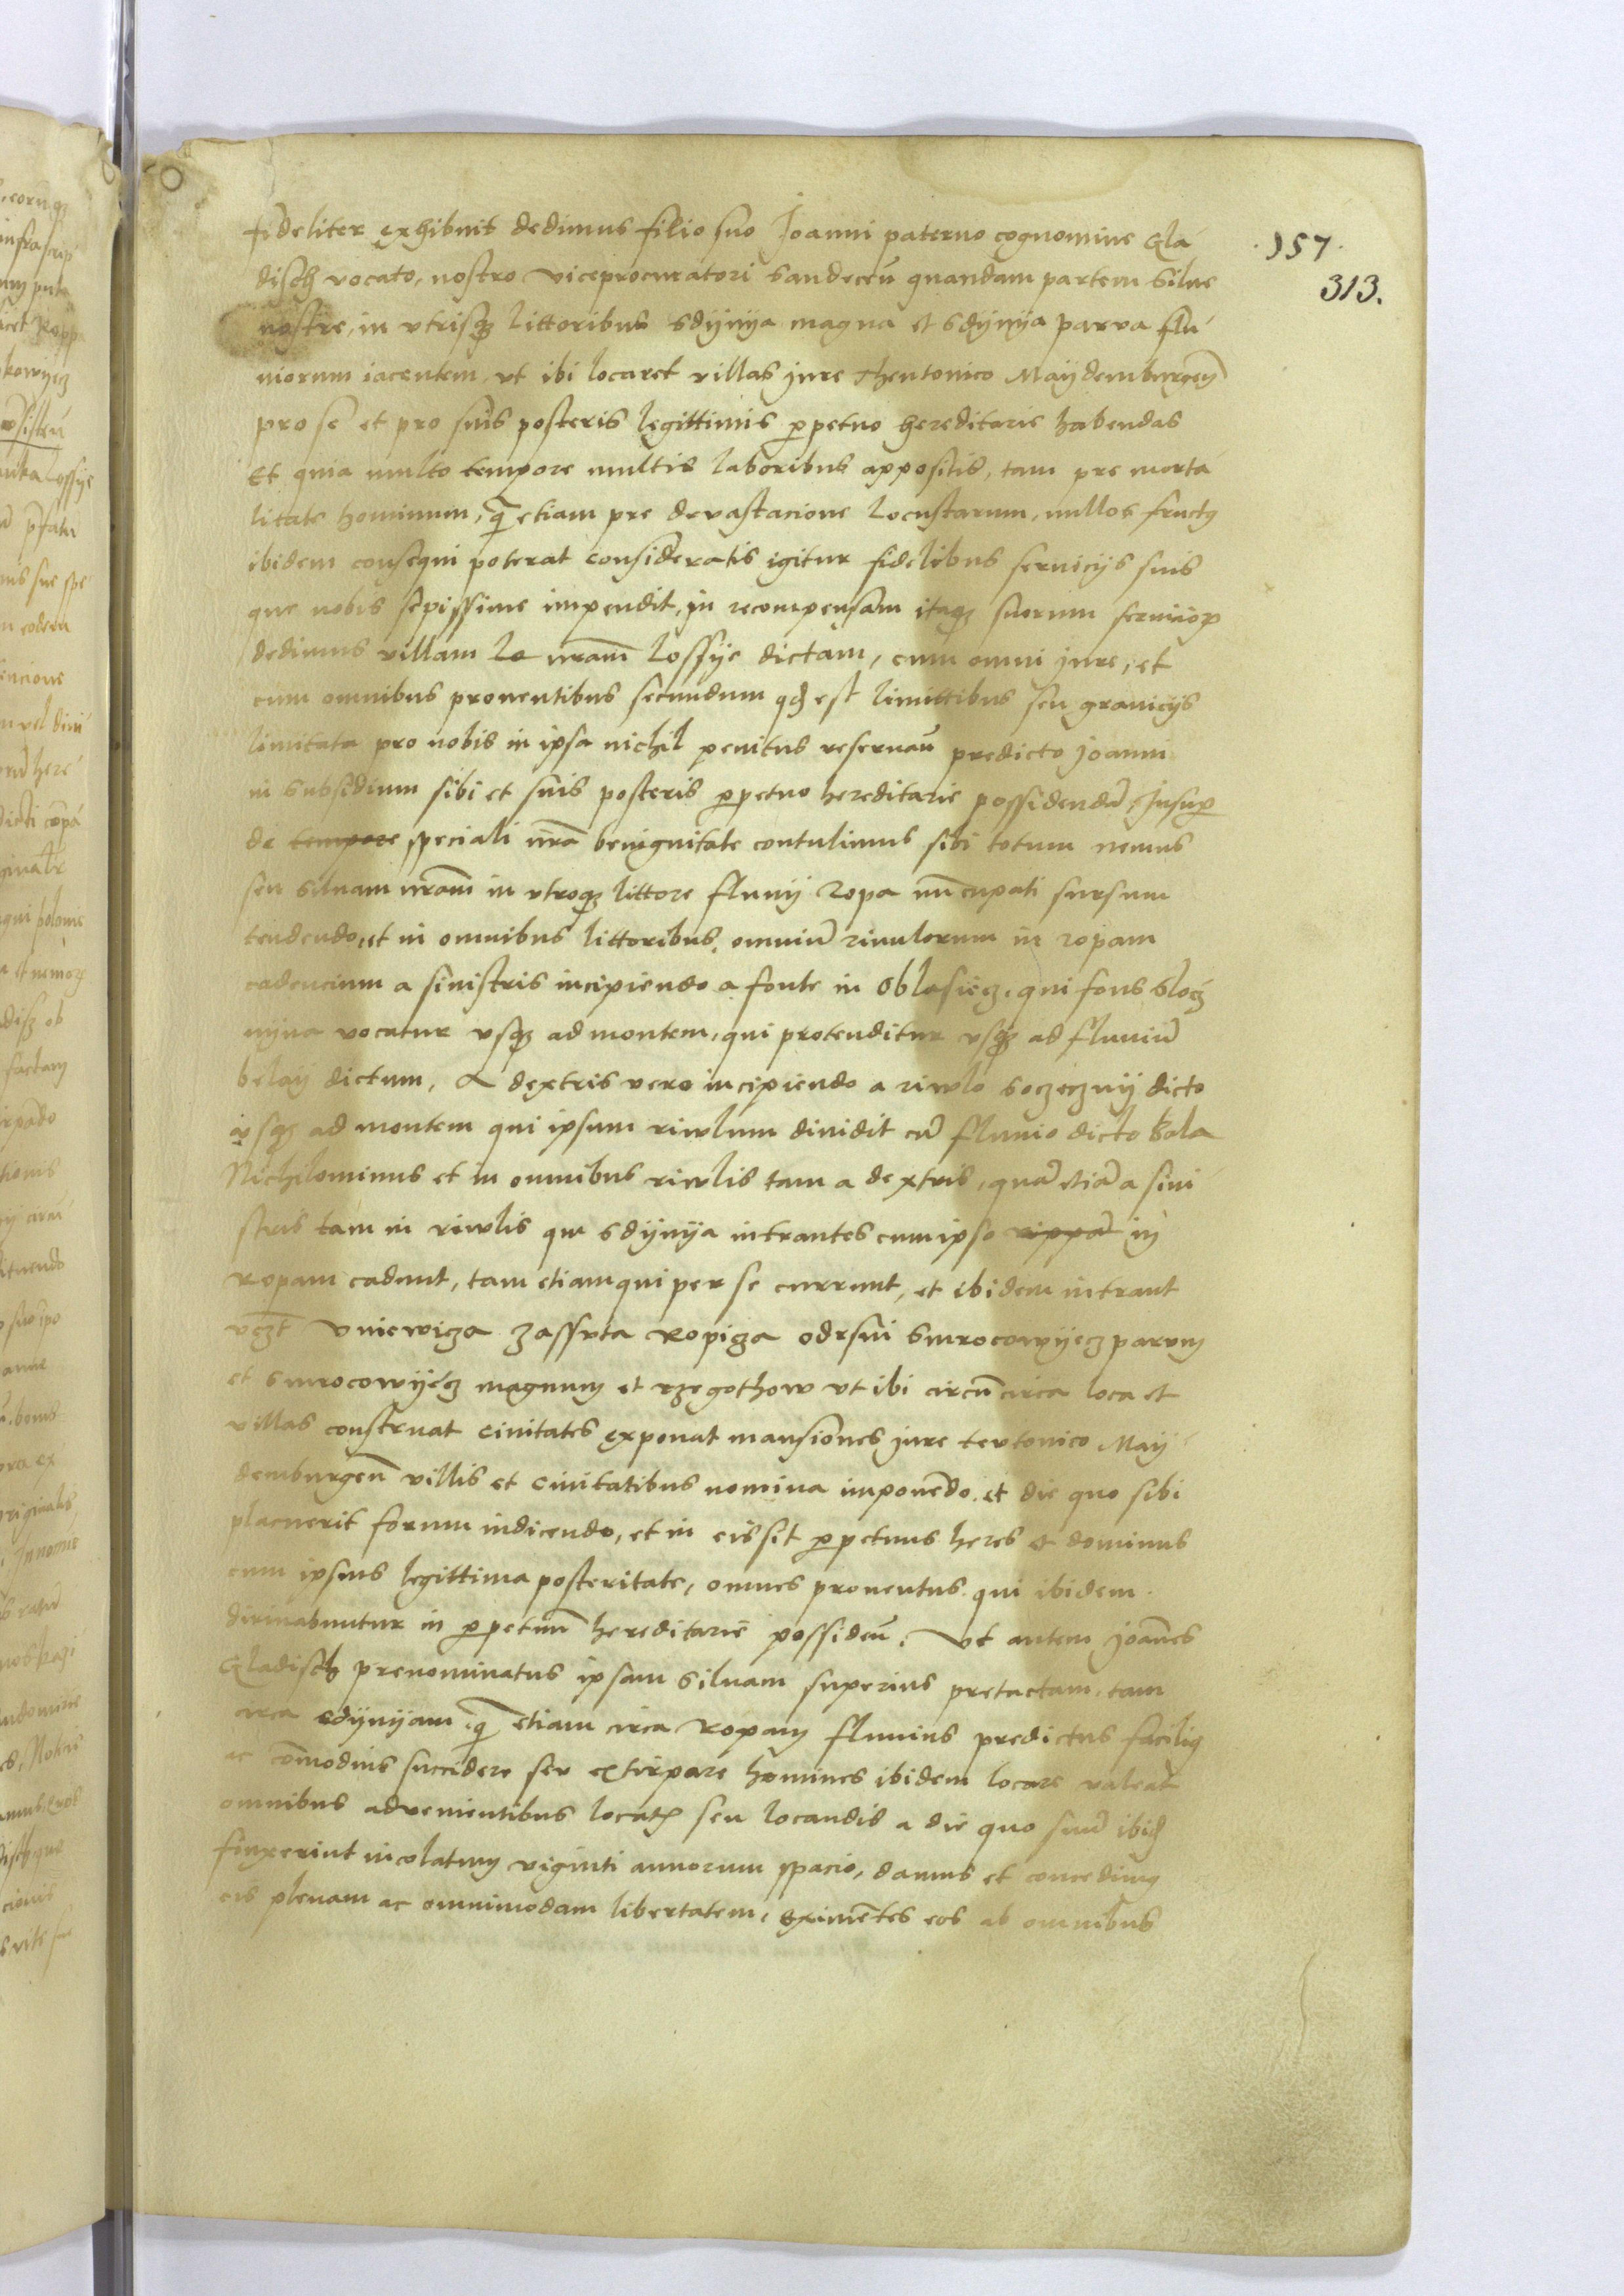 fideliter exhibuit dedimus filio suo Joanni paterno cognomine Gla
disch vocato, nostro viceprocuratori Sandeceñ quandam partem Silue
nostre, in vtrisqz littoribus Sdynya magna et Sdynya parva flu
uiorum iacentem, vt ibi locaret villas jure Thentonico Maydemburgeñ
pro se et pro suis posteris legittimis ꝑpetuo hereditarie habendas
Et quia multo tempore multis laboribus appositis, tam pre morta
litate hominum, q̃ etiam pre devastacione Locustarum, nullos fructꝯ
ibidem consequi poterat consideratis igitur fidelibus seruicijs suis
que nobis sepissime impendit, in recompensam itaqz suorum seruicioꝝ
dedimus villam La nrãm Lossye dictam, cum omni jure, et
cum omnibus prouentibus secundum qđ est limittibus seu granicijs
limitata pro nobis in ipsa nichil penitus reseruañ predicto Joanni
in subsidium sibi et suis posteris ꝑpetuo hereditarie possidendã, Insuꝑ
de tempore speciali nrã benignitate contulimus sibi totum nemus
seu siluam nrãm in vtroqz littore fluuij Ropa nũcupati sursum
tendendo, et in omnibus littoribus, omniũ riuulorum in ropam
cadencium a sinistris incipiendo a fonte in Oblasiecz, qui fons Slocz
nyna vocatur vsqz ad montem, qui protenditur vsqz ad fluuiũ
belay dictum, A dextris vero incipiendo a riwlo soczeczny dicto
vsqz ad montem qui ipsum riwlum diuidit cũ fluuio dicto Bala
Nichilominus et in omnibus riwlis tam a dextris, quã etiã a sini
stris tam in riwlis qui Sdynya intrantes cum ipso rippã in
Ropam cadunt, tam etiam qui per se currunt, et ibidem intrant
vcz̃t Vniewicza Zassuta Ropicza Odrsui Smrocowyecz parvm
et Smrocowyecz magnum et rzegothow vt ibi circũcirca loca et
villas construat Ciuitates exponat mansiones jure tevtonico May
demburgeñ villis et Ciuitatibus nomina imponẽdo. et die quo sibi
placuerit forum indicendo, et in eis sit ꝑpetuus heres et dominus
cum ipsius legittima posteritate, omnes prouentus qui ibidem
diriuabuntur in ꝑpetuũ hereditarie possideñ. Vt autem Joañes
Gladisch prenominatus ipsam Siluam superius pretactam, tam
circa Sdynyam, q̃ etiam circa Ropam fluuius predictus faciliꝯ
ac cõmodius succidere seu extirpare homines ibidem locare valeat
omnibus advenientibus locatꝭ seu locandis a die quo suũ ibiđ
finxerint incolatum viginti annorum spacio, damus et concedimꝯ
eis plenam ac omnimodam libertatem, eximẽtes eos ab omnibus
157.
313.